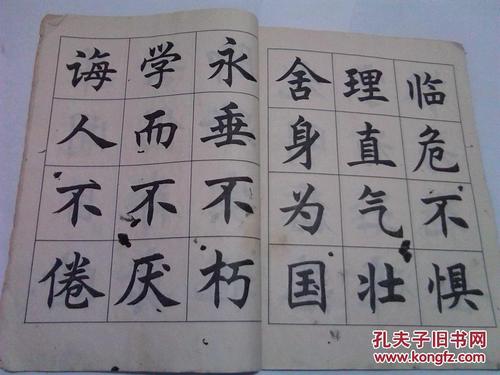 临危不惧
理直气壮
舍身为国
永垂不朽
学而不厌
诲人不倦
孔夫子旧书网
www.kongfz.com